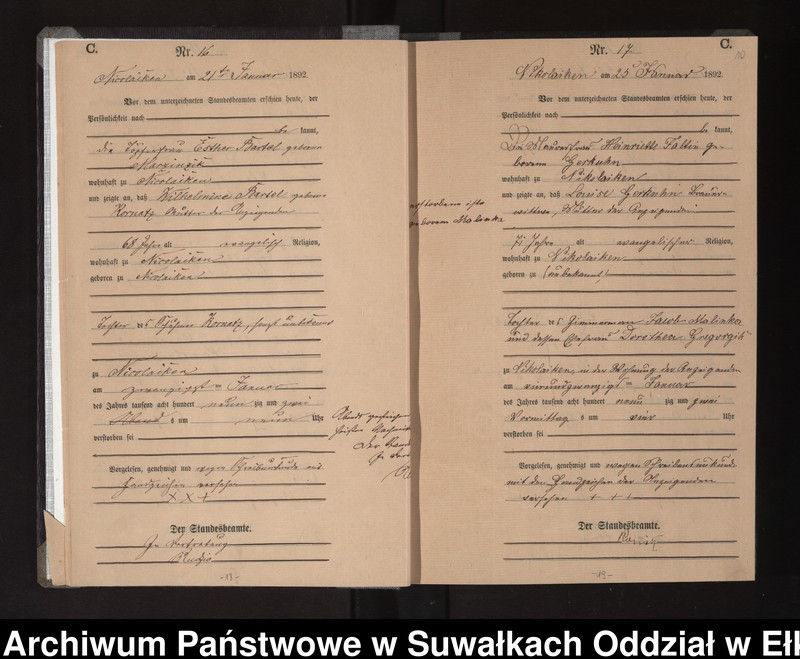 C.
Nr. 16
Nicolaiken am 21ten Januar 1892.
Vor dem unterzeichneten Standesbeamten erschien heute, der
Persönlichkeit nach
be kannt,
die Töpferfrau Esther Bartel geborene
wohnhaft zu Nicolaiken
und zeigte an, daß Wilhelmine Bartel geborene
Kornatz Mutter der Anzeigenden
68 Jahre alt evangelisch Religion,
wohnhaft zu Nicolaiken
geboren zu Nicolaiken
Tochter des Kornatz,
zu Nicolaiken
am zwanzigsten Januar
des Jahres tausend acht hundert neunzig und zwei
Abend s um neun Uhr
verstorben sei
Vorgelesen, genehmigt und wegen Schreibunkunde mit
Handzeichen versehen
+ + +
Der Standesbeamte.
In Vertretung
-18-
C.
Nr. 17
Nikolaiken am 25 Januar 1892.
Vor dem unterzeichneten Standesbeamten erschien heute, der
Persönlichkeit nach
be kannt,
Die Maurerfrau Heinriette Faltin ge-
borene Gorkuhn
wohnhaft zu Nikolaiken
und zeigte an, daß Louise Gorkuhn
Mutter der Anzeigenden
71 Jahre alt evangelischer Religion,
wohnhaft zu Nikolaiken
geboren zu (unbekannt)
Tochter des Zimmermann Jacob Malinka
und dessen Ehefrau Dorothea
zu Nikolaiken, in der Wohnung der Anzeigenden
am vierundzwanzigten Januar
des Jahres tausend acht hundert neunzig und zwei
Vormittag s um vier Uhr
verstorben sei
Vorgelesen, genehmigt und wegen Schreibensunkunde
mit den Handzeichen der Anzeigenden
versehen + + +
Der Standesbeamte.
-19-
Archiwum Państwowe w Suwałkach Oddział w Ełk